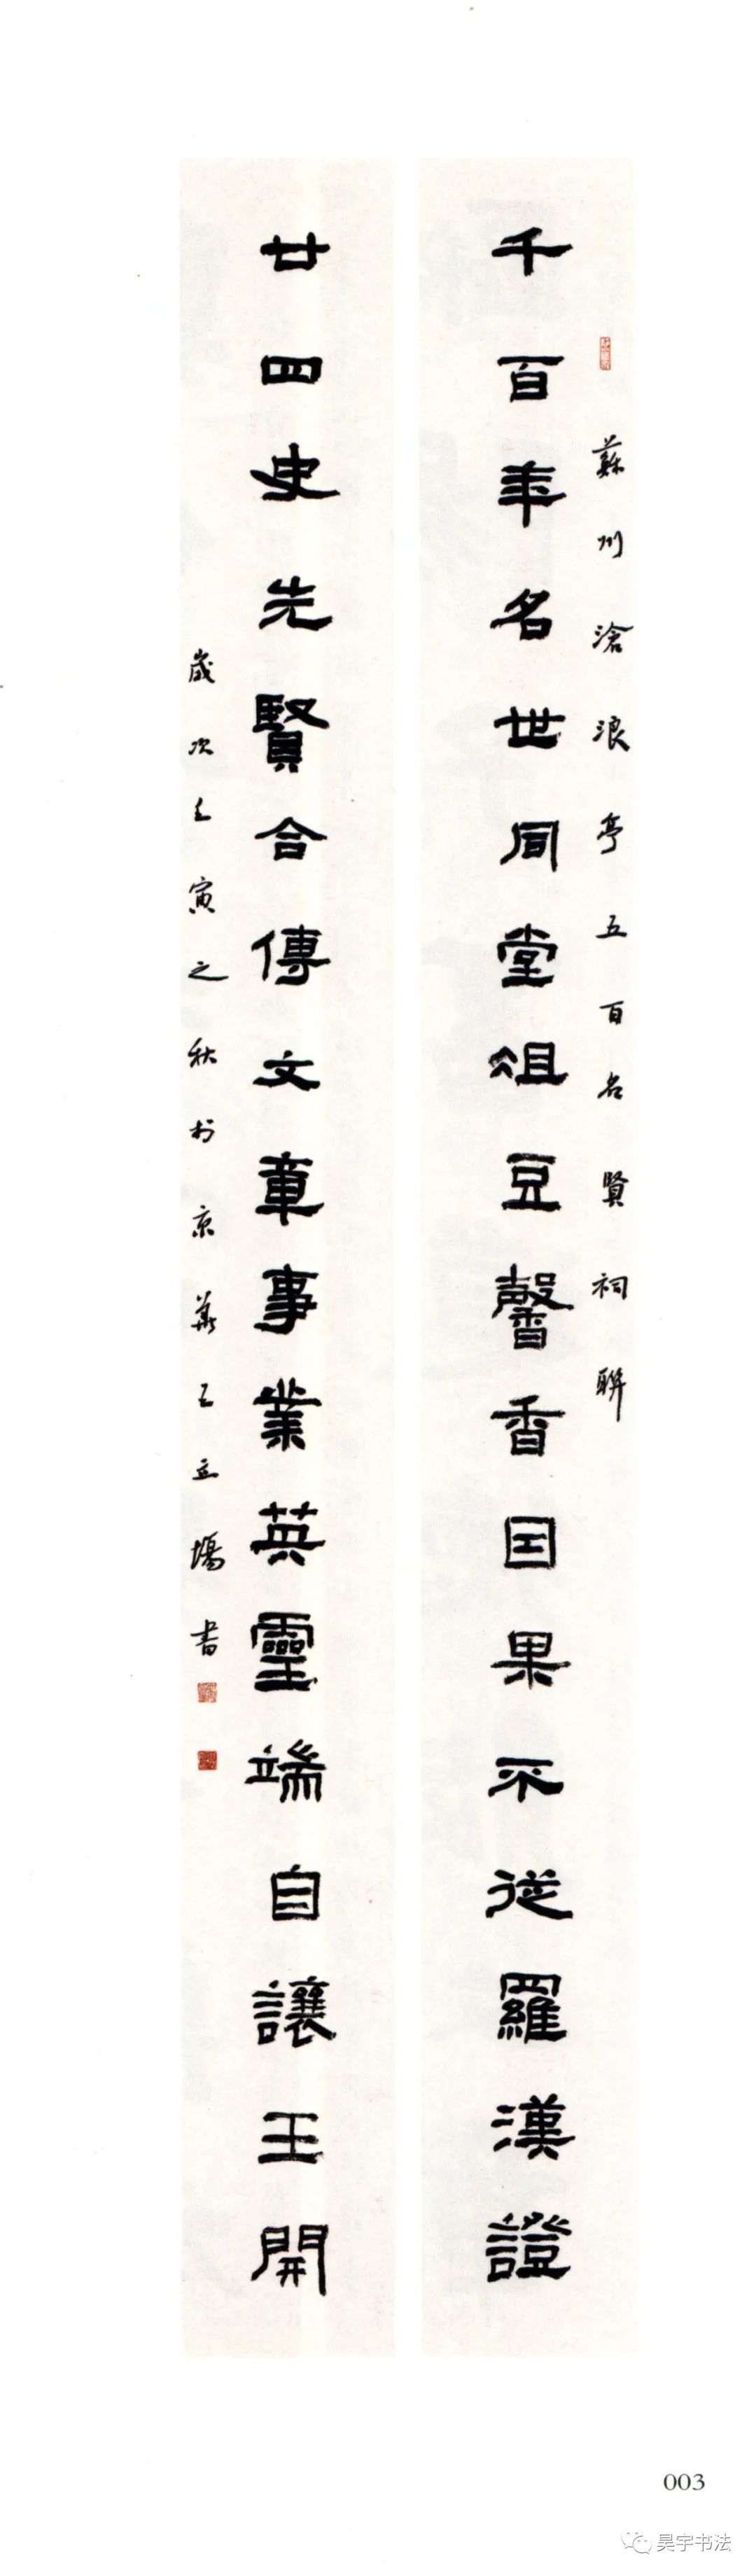 千百年名世同堂俎豆馨香因果不從羅漢證
蘇州滄浪亭五百名賢祠聯
廿四史先賢合傳文章事業英靈端自讓王開
歲次壬寅之秋於京華王立場書
003
昊宇书法